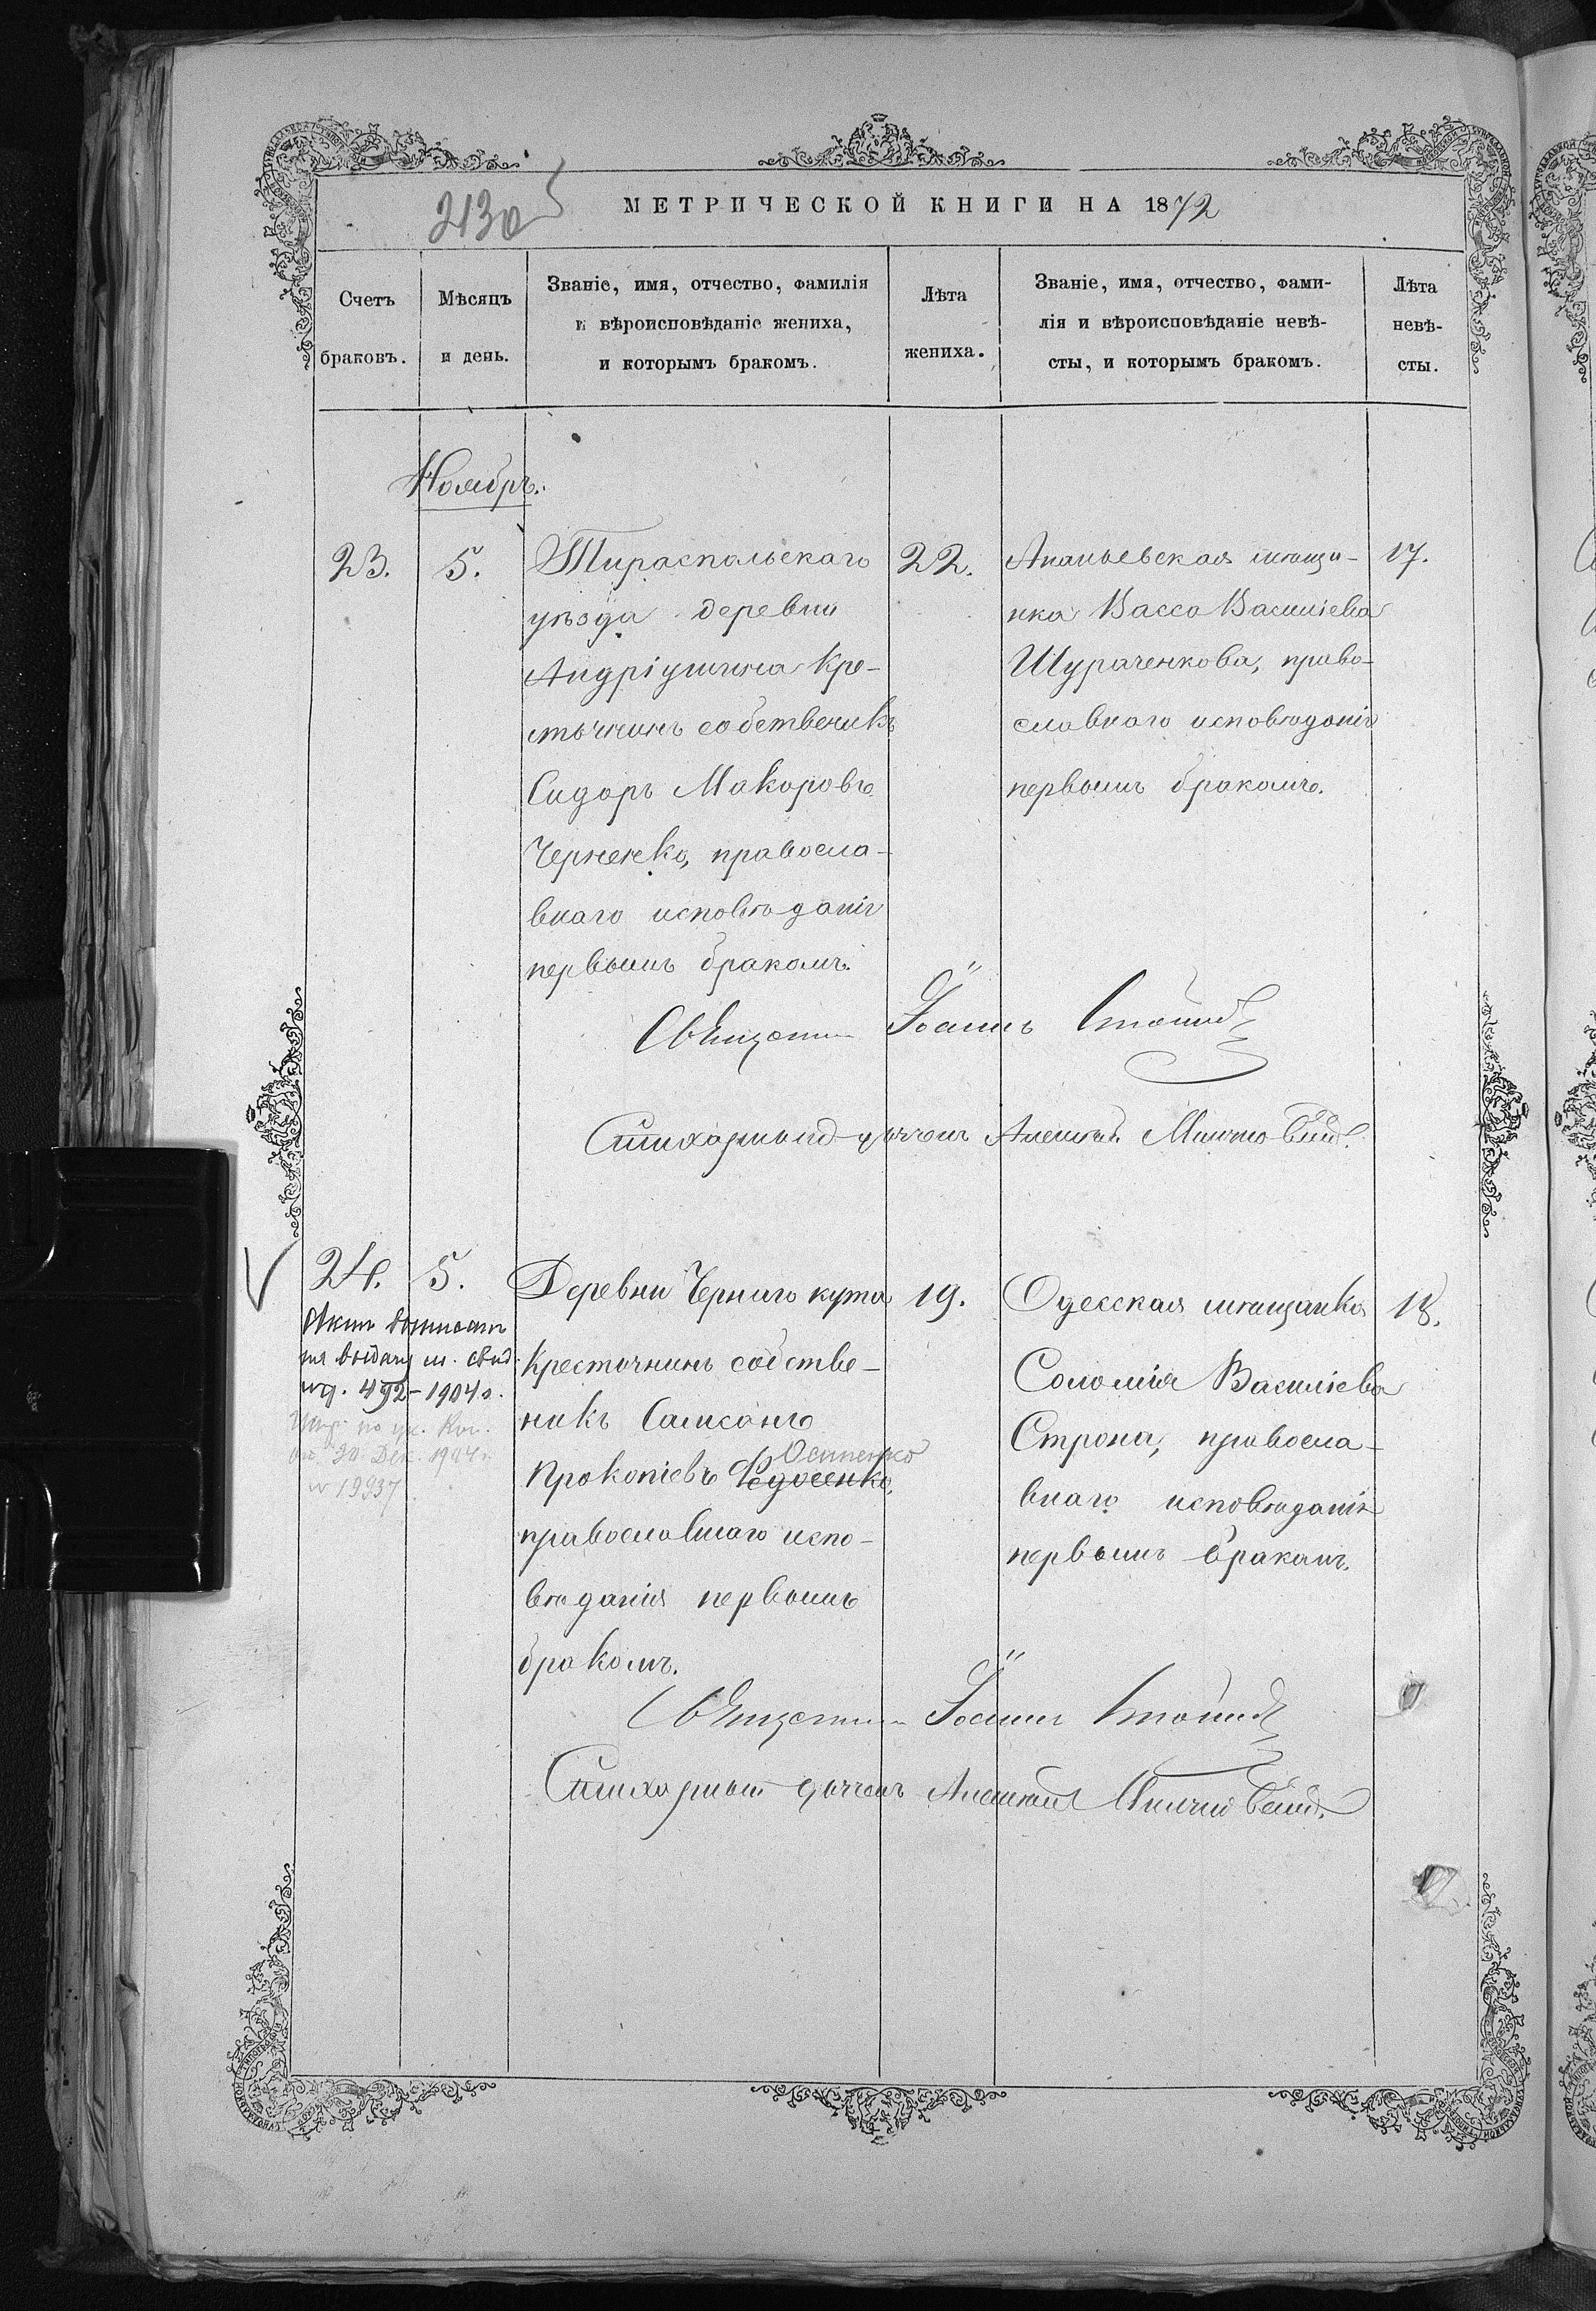 2130
МЕТРИЧЕСКОЙ КНИГИ НА 1872
Счетъ браковъ.
Мѣсяцъ и день.
Званіе, имя, отчество, фамилія
и вѣроисповѣданіе жениха,
и которымъ бракомъ.
Лѣта жениха.
Званіе, имя, отчество, фами-
лія и вѣроисповѣданіе невѣ-
сты, и которымъ бракомъ.
Лѣта невѣ-
сты.
Ноябрь.
23.
5.
Тираспольскаго
уѣзда деревни
Андріяшина кре-
стьянинъ собственикъ
Сидоръ Макаровъ
Черненко, правосла-
внаго исповѣданія
первымъ бракомъ.
22.
Ананьевская мѣща-
нка Васса Василіева
Шураченкова, право-
славнаго исповѣданія
первымъ бракомъ.
17.
Священникъ Іоаннъ
Стихарный дьячокъ Алексѣй
24.
5.
Актъ выписанъ
на выдачу м. свид.
492-1904 г.
по ук. Кон.
30 Дек. 1904 г.
№ 19937
Деревни Чернаго кута
Крестьянинъ собстве-
никъ Самсонъ
Прокопіевъ Федосенко, Остпенко
православнаго испо-
вѣданія первымъ
бракомъ.
19.
Одесская мѣщанка
Соломія Василіева
Строна, правосла-
внаго исповѣданія
первымъ бракомъ.
18.
Священникъ Іоаннъ
Стихарный дьячокъ Алексѣй